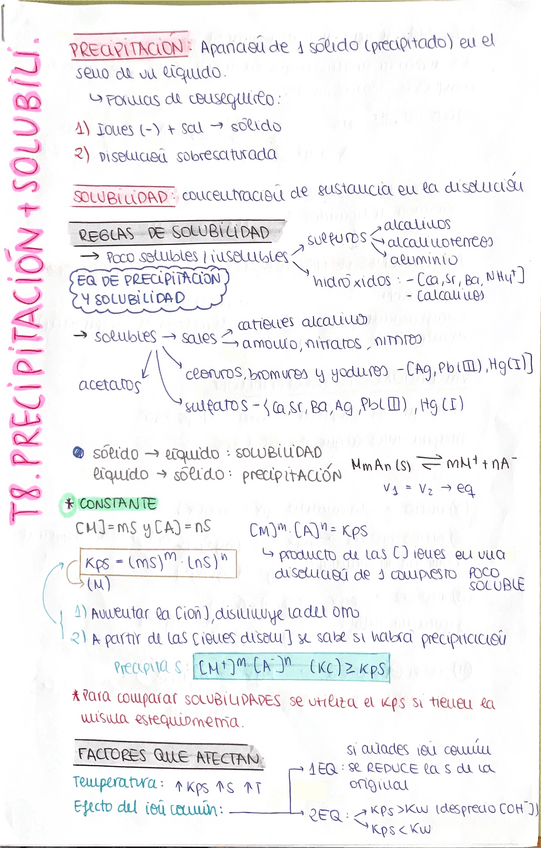 T8. PRECIPITACIÓN + SOLUBILI.
PRECIPITACIÓN: Aparición de 1 sólido (precipitado) en el
seno de un líquido.
↳ Formas de conseguirlo:
1) Iones (-) + sal → sólido
2) Disolución sobresaturada
SOLUBILIDAD: concentración de sustancia en la disolución
REGLAS DE SOLUBILIDAD
→ Poco solubles / insolubles
sulfuros
alcalinos
alcalinoterreos
aluminio
hidróxidos: - [Ca, Sr, Ba, NH4+]
- calcalinos
EQ DE PRECIPITACIÓN
Y SOLUBILIDAD
→ solubles → sales
cationes alcalinos
amonio, nitratos, nitritos
cloruros, bromuros y yoduros - [Ag, Pb(II), Hg(I)]
acetatos
sulfatos - {Ca, Sr, Ba, Ag, Pb(II), Hg(I)
sólido → líquido: SOLUBILIDAD
líquido → sólido: PRECIPITACIÓN
MmAn(s) ⇌ mM+ + nA-
V1 = V2 → eq
* CONSTANTE
[M] = mS y [A] = nS
[M]^m · [A]^n = Kps
Kps = (mS)^m · (nS)^n
↳ (M)
↳ producto de las [] iones en una
disolución de 1 compuesto POCO
SOLUBLE
1) Aumentar la [ión], disminuye la del otro
2) A partir de las [iones disolu] se sabe si habrá precipitación
Precipita si: [M+]^m [A-]^n (KC) ≥ Kps
* Para comparar SOLUBILIDADES se utiliza el Kps si tienen la
misma estequiometría.
FACTORES QUE AFECTAN
Temperatura: ↑Kps ↑S ↑T
Efecto del ión común:
si añades ión común
1EQ: se REDUCE la S de la
original
2EQ:
Kps > Kw (desprecio [OH-])
Kps < Kw